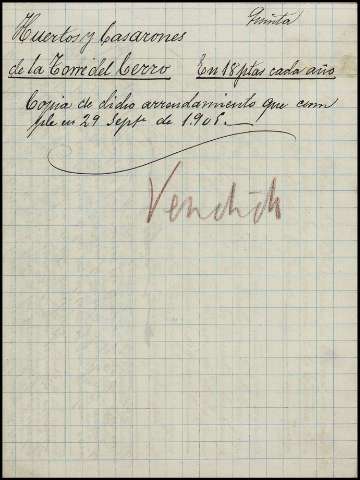 Quinta
Huertos y Casarones
de la Torre del Cerro. En 18 ptas cada año
Copia de dicho arrendamiento que cum
ple en 29 Sept. de 1.908.
Vendido